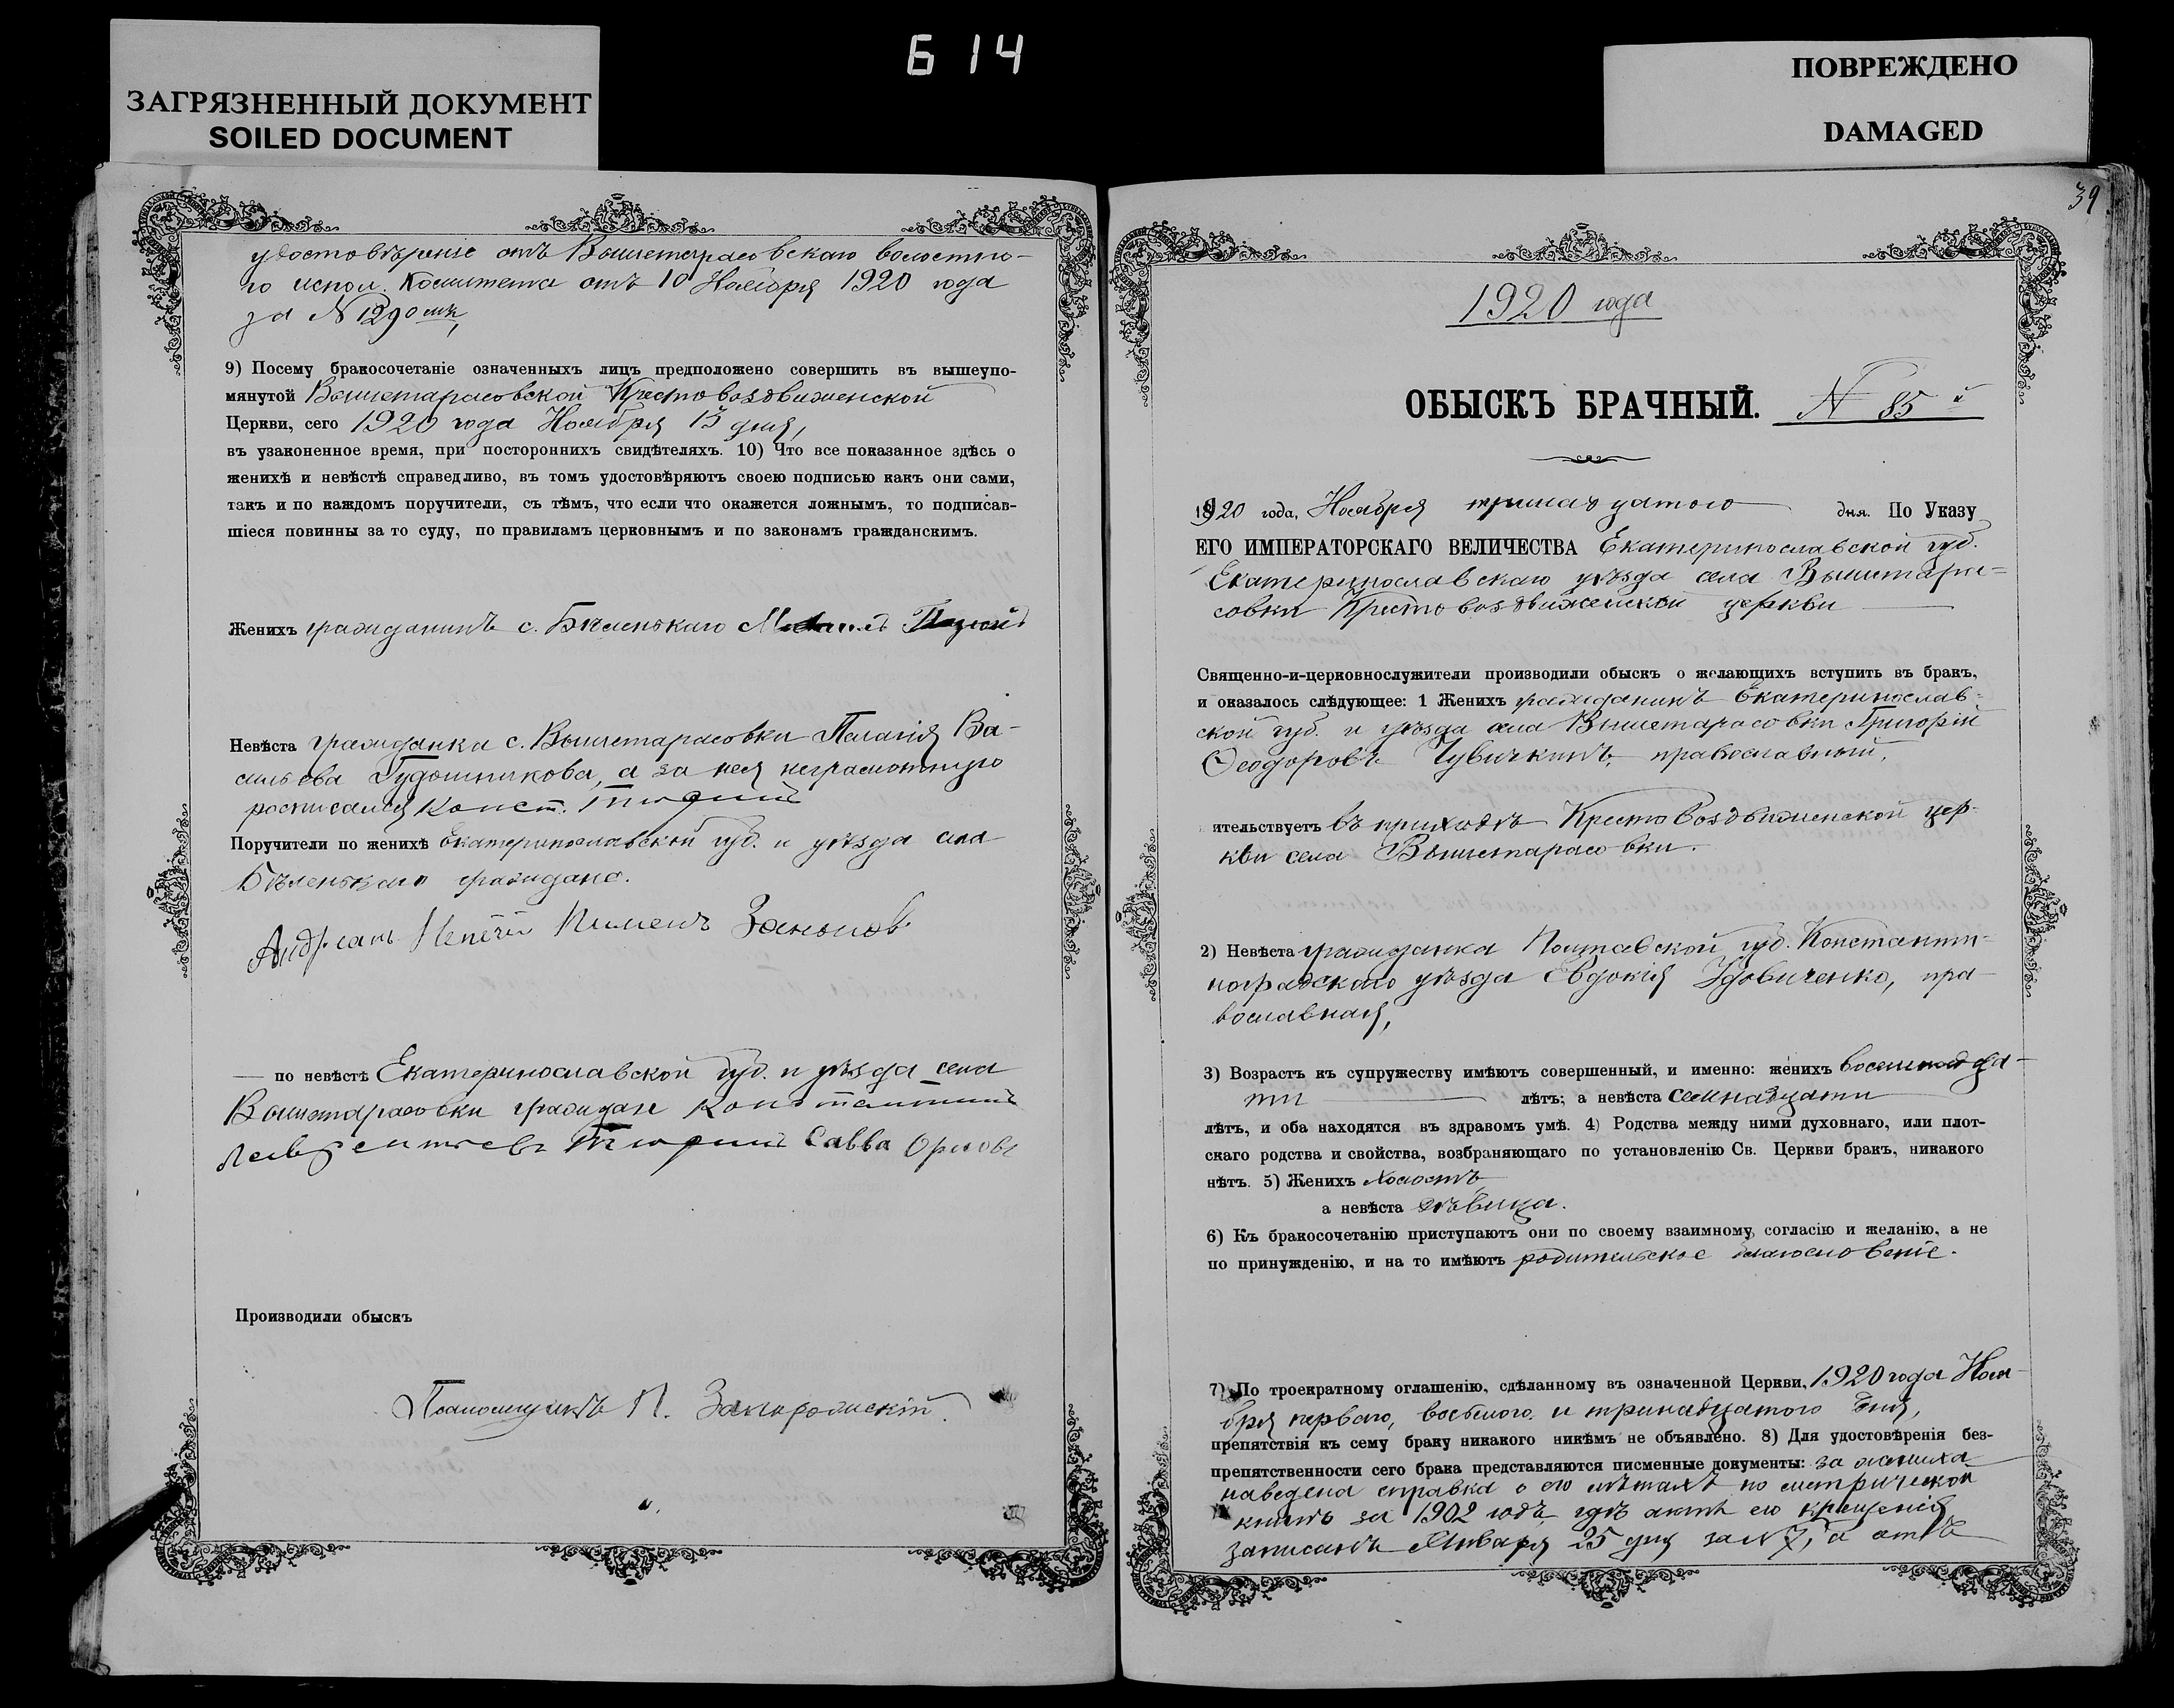 Б 14
ЗАГРЯЗНЕННЫЙ ДОКУМЕНТ
SOILED DOCUMENT
ПОВРЕЖДЕНО
DAMAGED
удостовѣреніе отъ Вышетарасовскаго волостно-
го испол. Комитета отъ 10 Ноября 1920 года
за № 1290
9) Посему бракосочетаніе означенныхъ лицъ предположено совершить въ вышеупо-
мянутой Вышетарасовской Крестовоздвиженской
Церкви, сего 1920 года Ноября 13 дня,
въ узаконенное время, при постороннихъ свидѣтеляхъ. 10) Что все показанное здѣсь о
женихѣ и невѣстѣ справедливо, въ томъ удостовѣряютъ своею подписью какъ они сами,
такъ и по каждомъ поручители, съ тѣмъ, что если что окажется ложнымъ, то подписав-
шіеся повинны за то суду, по правиламъ церковнымъ и по законамъ гражданскимъ.
Женихъ гражданинъ с. Бѣленькаго
Невѣста гражданка с. Вышетарасовки Пелагія Ва-
сильева Гудошникова, а за нея неграмотную
росписался Конст. Тюрин
Поручители по женихѣ Екатеринославской губ. и уѣзда села
Бѣленькаго граждане.
Андриан Пимен
— по невѣстѣ Екатеринославской губ. и уѣзда села
Вышетарасовки граждане Константин
Лаврентьев Тюрин Савва Орлов
Производили обыскъ
Псаломщикъ П. Запорожскій.
39
1920 года
ОБЫСКЪ БРАЧНЫЙ. № 85й
1920 года, Ноября тринадцатого дня. По Указу
ЕГО ИМПЕРАТОРСКАГО ВЕЛИЧЕСТВА Екатеринославской губ.
Екатеринославскаго уѣзда села Вышетара-
совки Крестовоздвиженской церкви
Священно-и-церковнослужители производили обыскъ о желающихъ вступить въ бракъ,
и оказалось слѣдующее: 1 Женихъ гражданинъ Екатеринослав-
ской губ. и уѣзда села Вышетарасовки Григорій
Ѳеодоровъ Чувичкинъ, православный,
ительствуетъ въ приходѣ Крестовоздвиженской цер-
кви села Вышетарасовки.
2) Невѣста гражданка Полтавской губ. Константи-
ноградскаго уѣзда Евдокія Удовиченко, пра-
вославная,
3) Возрастъ къ супружеству имѣютъ совершенный, и именно: женихъ восемнадца-
ти лѣтъ; а невѣста семнадцати
лѣтъ, и оба находятся въ здравомъ умѣ. 4) Родства между ними духовнаго, или плот-
скаго родства и свойства, возбраняющаго по установленію Св. Церкви бракъ, никакого
нѣтъ. 5) Женихъ холостъ
а невѣста дѣвица.
6) Къ бракосочетанію приступаютъ они по своему взаимному согласію и желанію, а не
по принужденію, и на то имѣютъ родительское благословеніе.
7) По троекратному оглашенію, сдѣланному въ означенной Церкви, 1920 года Ноя-
бря перваго, восьмого и тринадцатого дня,
препятствія къ сему браку никакого никѣмъ не объявлено. 8) Для удостовѣренія без-
препятственности сего брака представляются писменные документы: за жениха
наведена справка о его лѣтахъ по метрической
книгѣ за 1902 годъ гдѣ актъ его крещенія
записанъ Января 25 дня за № 7, а отъ